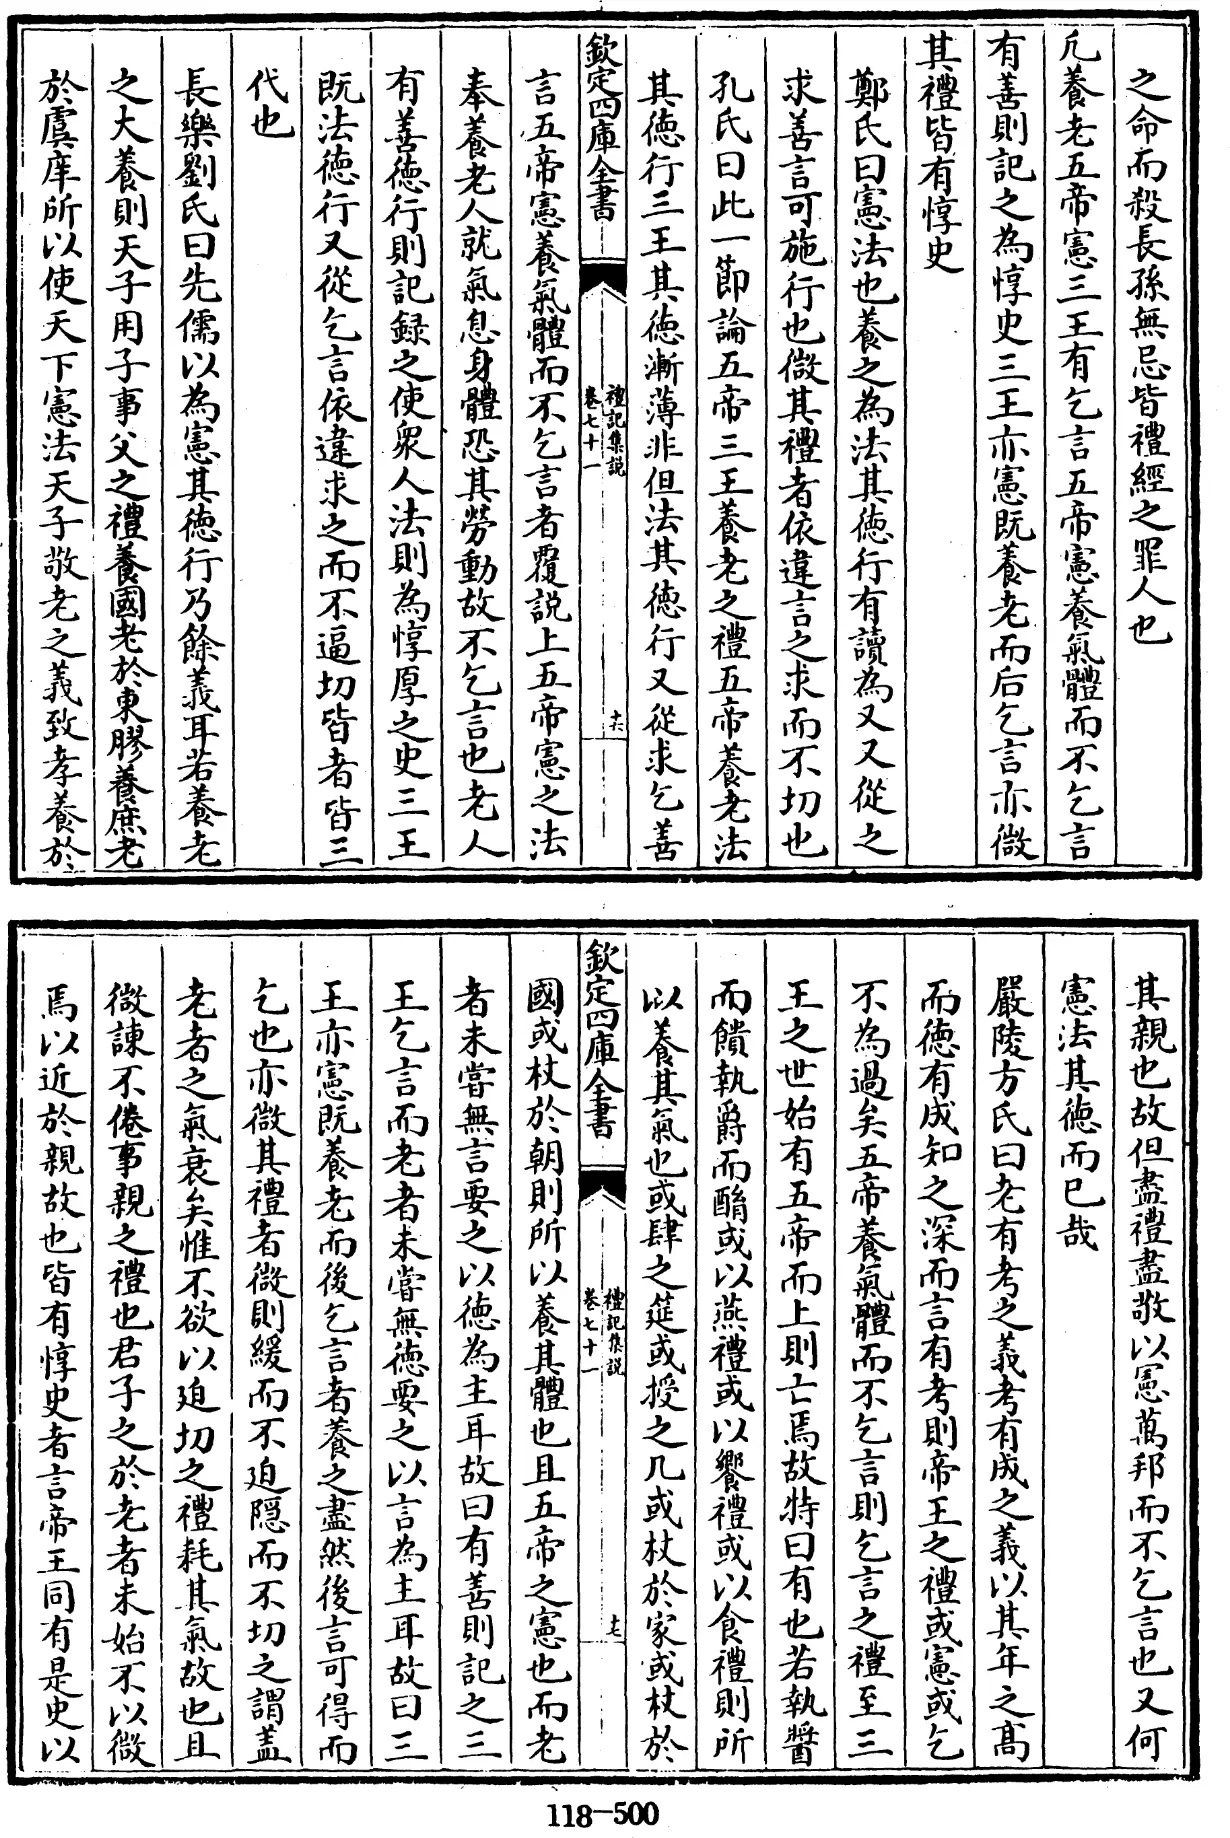 之命而殺長孫無忌皆禮經之罪人也
凢養老五帝憲三王有乞言五帝憲養氣體而不乞言
有善則記之為惇史三王亦憲既養老而后乞言亦微
其禮皆有惇史
鄭氏曰憲法也養之為法其徳行有讀為又又從之
求善言可施行也微其禮者依違言之求而不切也
孔氏曰此一節論五帝三王養老之禮五帝養老法
其徳行三王其徳漸薄非但法其徳行又從求乞善
欽定四庫全書
禮記集說
卷七十一
十六
言五帝憲養氣體而不乞言者覆説上五帝憲之法
奉養老人就氣息身體恐其勞動故不乞言也老人
有善徳行則記録之使衆人法則為惇厚之史三王
既法徳行又從乞言依違求之而不逼切皆者皆三
代也
長樂劉氏曰先儒以為憲其徳行乃餘義耳若養老
之大養則天子用子事父之禮養國老於東膠養庶老
於虞庠所以使天下憲法天子敬老之義致孝養於
其親也故但盡禮盡敬以憲萬邦而不乞言也又何
憲法其徳而已哉
嚴陵方氏曰老有考之義考有成之義以其年之髙
而徳有成知之深而言有考則帝王之禮或憲或乞
不為過矣五帝養氣體而不乞言則乞言之禮至三
王之世始有五帝而上則亡焉故特曰有也若執醬
而饋執爵而酳或以燕禮或以饗禮或以食禮則所
以養其氣也或肆之筵或授之几或杖於家或杖於
欽定四庫全書
禮記集說
卷七十一
十七
國或杖於朝則所以養其體也且五帝之憲也而老
者未嘗無言要之以徳為主耳故曰有善則記之三
王乞言而老者未嘗無徳要之以言為主耳故曰三
王亦憲既養老而後乞言者養之盡然後言可得而
乞也亦微其禮者微則緩而不迫隠而不切之謂盖
老者之氣衰矣惟不欲以廹切之禮耗其氣故也且
微諫不倦事親之禮也君子之於老者未始不以微
焉以近於親故也皆有惇史者言帝王同有是史以
118-500